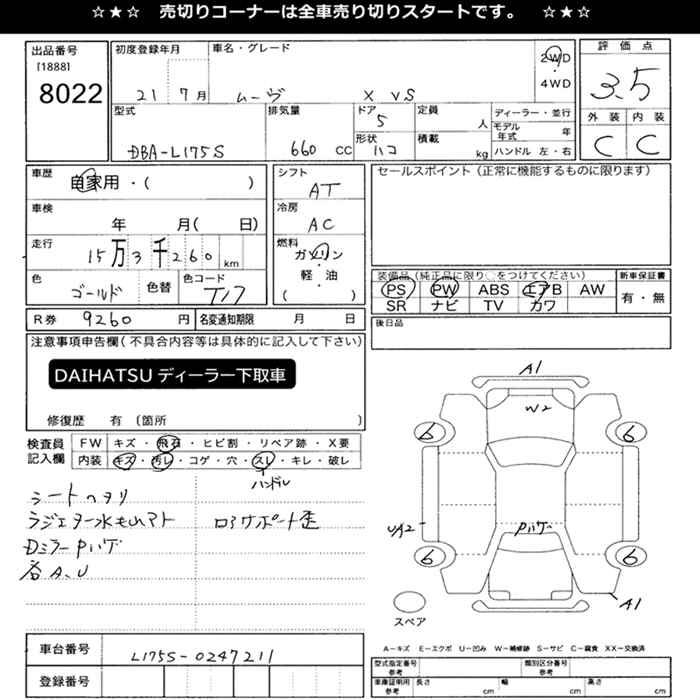 ☆★☆ 売切りコーナーは全車売り切りスタートです。 ☆★☆
出品番号
[1888]
8022
初度登録年月
21 7月
車名・グレード
ムーヴ X VS
2WD
4WD
評価点
3.5
外装 内装
C C
型式
DBA-L175S
排気量
660 CC
ドア
5
形状
ハコ
定員
人
積載
kg
ディーラー・並行
モデル年式 年
ハンドル 左・右
車歴
自家用・( )
車検
年 月( 日)
走行
15万3千260km
色
ゴールド
色替
色コード
T17
シフト
AT
冷房
AC
燃料
ガソリン
軽・油
( )
セールスポイント(正常に機能するものに限ります)
装備品(純正品に限り○をつけてください)
PS PW ABS エアB AW
SR ナビ TV カワ
新車保証書
有・無
R券 9260 円
名変通知期限 月 日
後日品
注意事項申告欄(不具合内容等は具体的に記入して下さい)
DAIHATSU ディーラー下取車
修復歴 有 (箇所 )
検査員記入欄
FW キズ・飛石・ヒビ割・リペア跡・X要
内装 キズ・汚レ・コゲ・穴・スレ・キレ・破レ
ハンドル
シートヘタリ
ラジエター水もれアト
ロアサポート歪
Dミラー Pハゲ
各A、U
A1
W2
6
6
UA2
Pハゲ
6
6
A1
スペア
A−キズ E−エクボ U−凹み W−補修跡 S−サビ C−腐食 XX−交換済
車台番号
L175S-0247211
登録番号
型式指定番号 参考
類別区分番号 参考
車庫証明用 参考
長さ cm
幅 cm
高さ cm